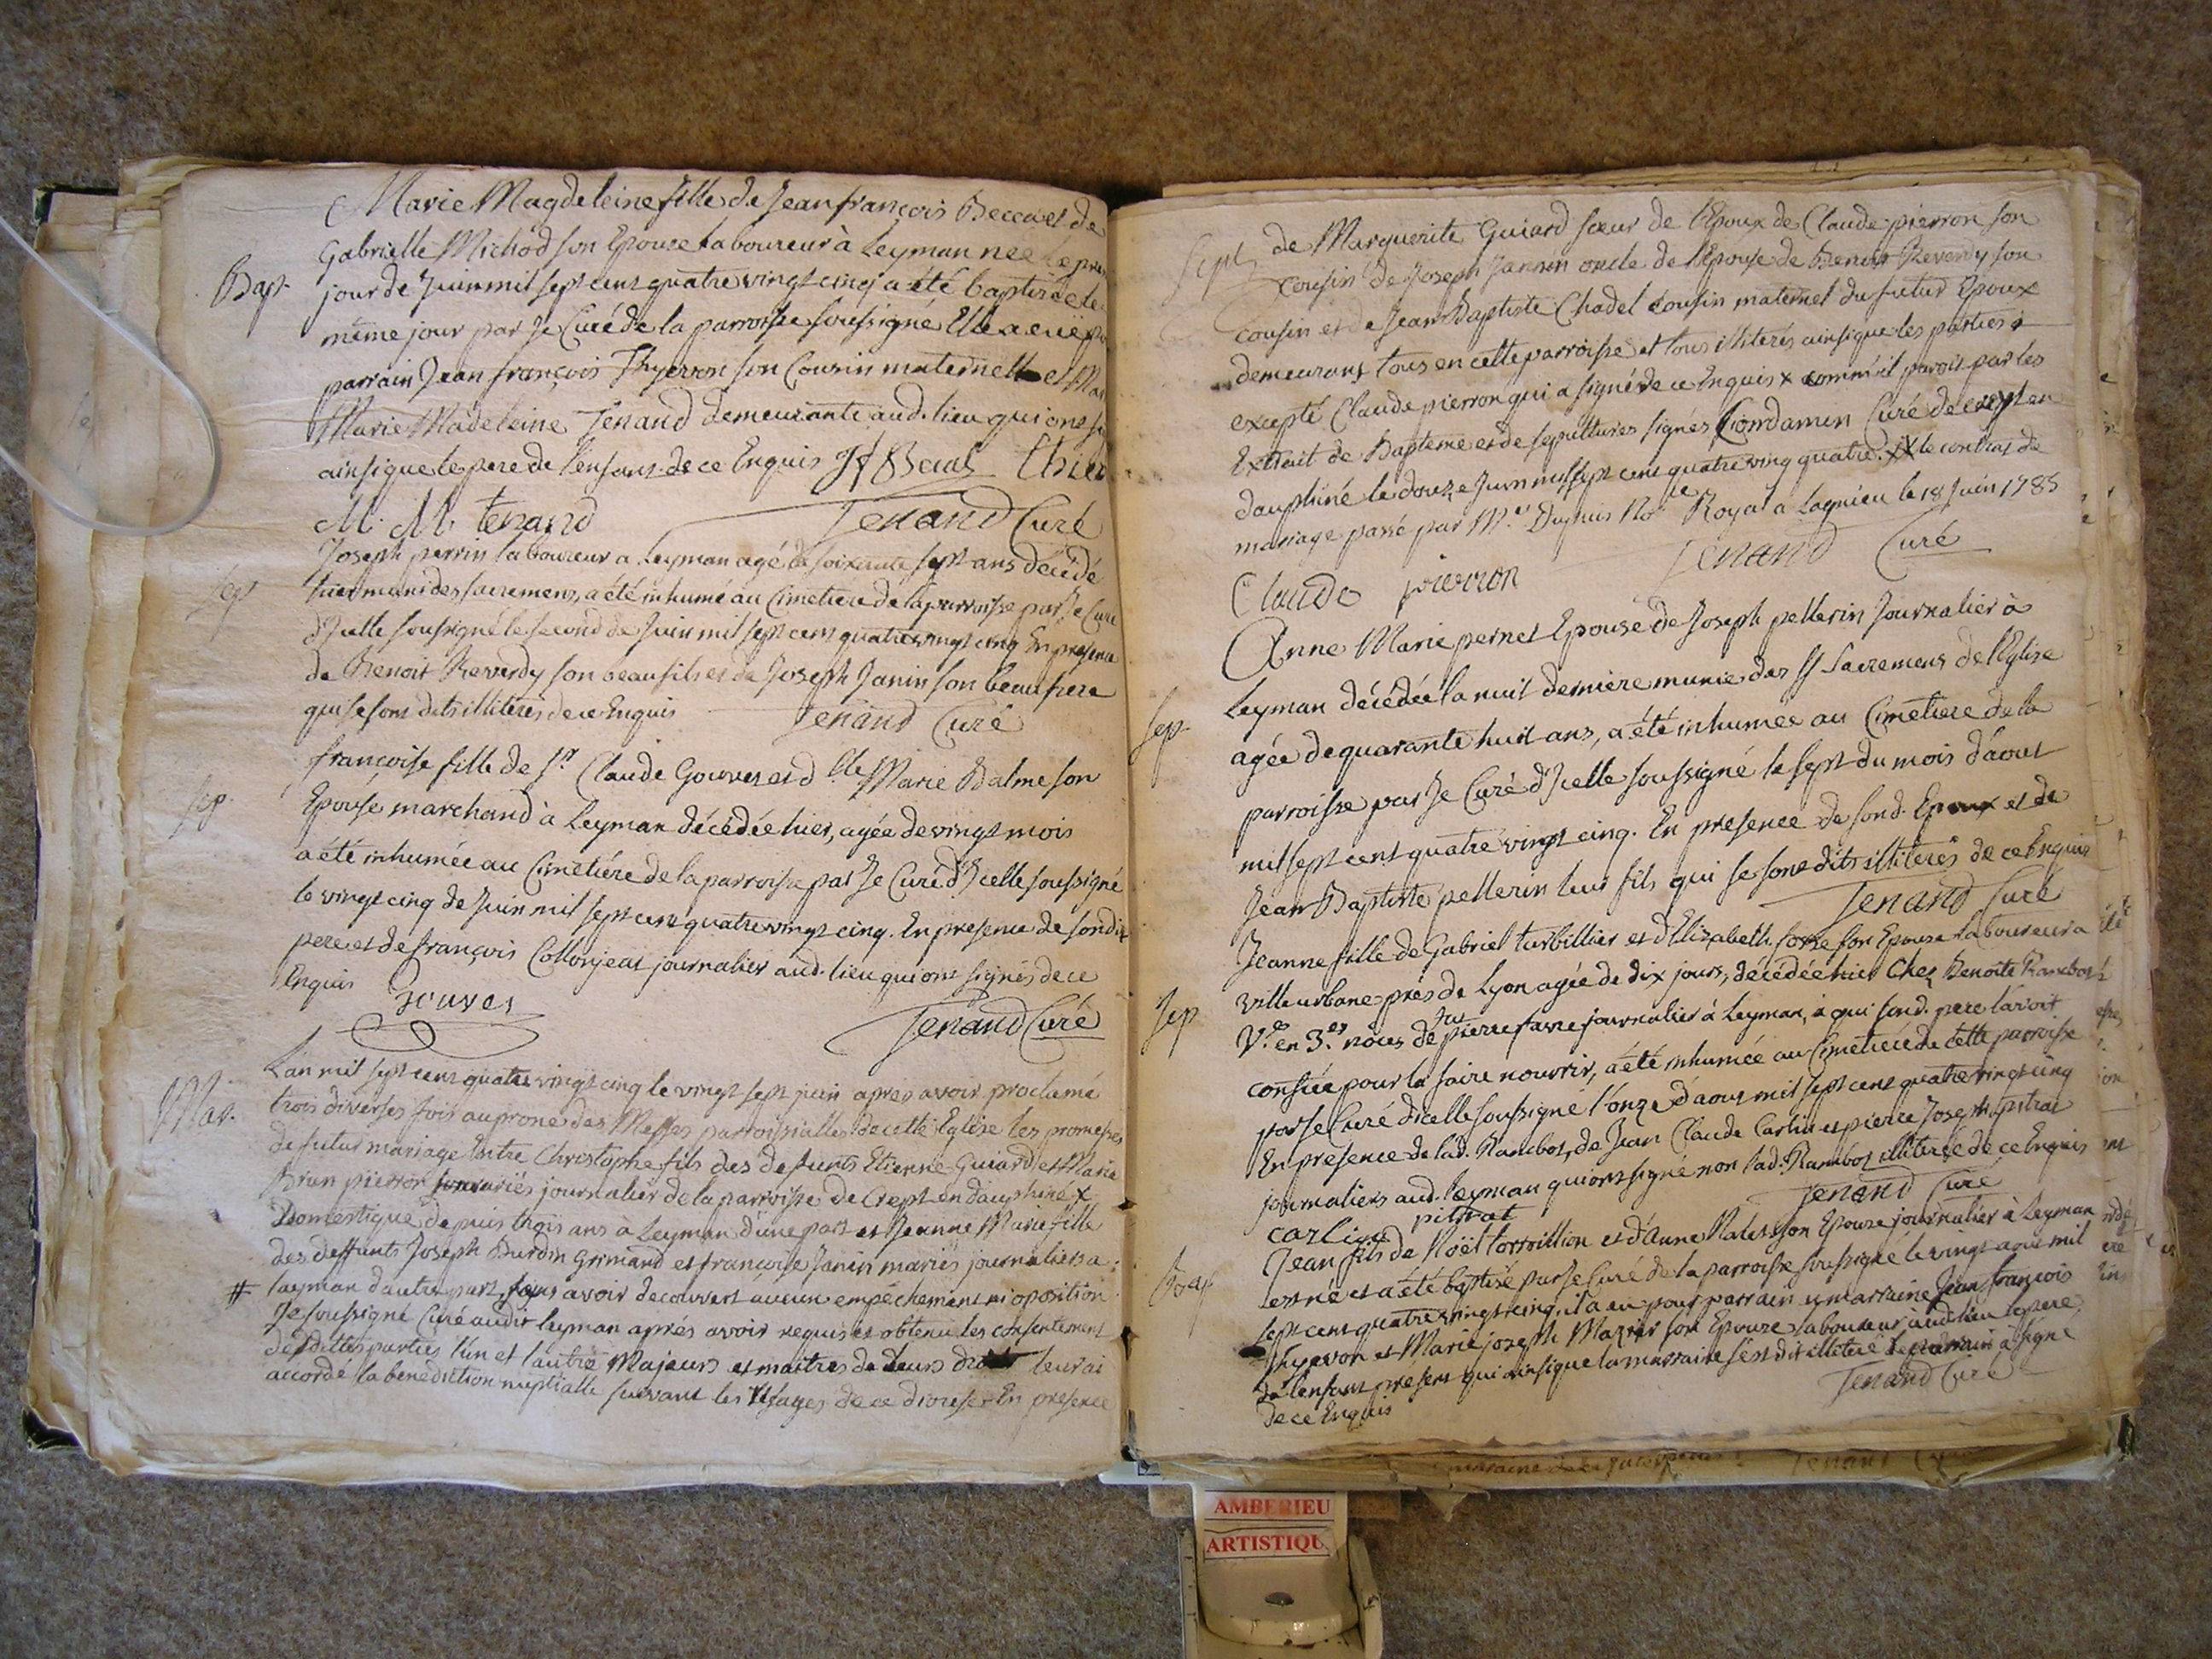 Marie Magdeleine fille de Jean françois Beccat et de
Gabrielle Michod son Epouse laboureur à Leyman née le
Bap.
jour de Juin mil sept cent quatre vingt cinq a été baptisée le
même jour par Je Curé de la parroisse soussigné Elle a eu
parrain Jean françois Thyervon son Cousin maternel et
Marie Madeleine Tenand demeurante aud. lieu qui ont
ainsi que le pere de l'enfant. de ce Enquis
M. M. tenand Tenand Curé
Joseph perrin laboureur a Leyman agé de soixante sept ans décédé
Sep
hier muni des sacremens, a été inhumé au Cimetiere de la parroisse par Je Curé
d'Icelle soussigné le second de Juin mil sept cent quatre vingt cinq En presence
de Benoit Reverdy son beaufils et de Joseph Janin son beaufrere
qui se sont dits illiterés de ce Enquis Tenand Curé
françoise fille de Sr Claude Gouvet et dlle Marie Balme son
Sep.
Epouse marchand à Leyman décédée hier, agée de vingt mois
a été inhumée au Cimetiére de la parroisse par Je Curé d'Icelle soussigné
le vingt cinq de Juin mil sept cent quatre vingt cinq. En presence de sondit
pere et de françois Collonjeat journalier aud. lieu qui ont signés de ce
Enquis Gouvet
Tenand Curé
Mar.
L'an mil sept cent quatre vingt cinq le vingt sept juin apres avoir proclamé
trois diverses fois au prone des Messes parroissialles de cette Eglise les promesses
de futur mariage Entre Christophe fils des defunts Etienne Guiard et Marie
Brun pierron mariés journalier de la parroisse de Crept en dauphiné x
Domestique depuis trois ans à Leyman d'une part et Jeanne Marie fille
des deffunts Joseph Burdin Grimand et françoise Janin mariés journaliers a
# Leyman d'autre part, sans avoir decouvert aucun empêchement ni oposition
Je soussigné Curé audit leyman aprés avoir requis et obtenu les consentement
desdittes parties l'un et l'autre Majeurs et maitres de leurs droit leur ai
accordé la benediction nuptialle suivant les Usages de ce diocese. En presence
Sept
de Marguerite Guiard sœur de l'Epoux de Claude pierron son
cousin de Joseph Jannin oncle de l'Epouse de Benoit Reverdy son
cousin et de Jean Baptiste Chadel cousin maternel du futur Epoux
demeurans tous en cette parroisse et tous illiterés ainsi que les parties
excepté Claude pierron qui a signé de ce Enquis x comm'il paroit par les
Extrait de Bapteme et de sepultures signés Condamin Curé de crept en
dauphiné le douze Juin mil sept cent quatre vingt quatre. xx le contrat de
mariage passé par Me Dupuis Nore Royal a Lagnieu le 18 Juin 1785
Claude pierron Tenand Curé
Anne Marie pernet Epouse de Joseph pellerin Journalier à
Sep
Leyman décédée la nuit derniere munie des SS Sacremens de l'Eglise
agée de quarante huit ans, a été inhumée au Cimetiere de la
parroisse par Je Curé d'Icelle soussigné le sept du mois d'aout
mil sept cent quatre vingt cinq. En presence de sond. Epoux et de
Jean Baptiste pellerin leur fils qui se sont dits illiterés de ce Enquis
Tenand Curé
Jeanne fille de Gabriel turbillier et d'Elizabeth son Epouse laboureur a
Sep
Villeurbane prés de Lyon agée de dix jours, décédée hier Chez Benoite Rambot
Ve en 3es nôces de feu pierre favre journalier à Leyman, à qui sond. pere l'avoit
confiée pour la faire nourrir, a été inhumée au Cimetiére de cette parroisse
par Je Curé d'Icelle soussigné l'onze d'aout mil sept cent quatre vingt cinq
En presence de lad. Rambot, de Jean Claude Carlin et pierre Joseph pitrat
journaliers aud. leyman qui ont signé non lad. Rambot illiterée de ce Enquis
carlin pitrat Tenand Curé
Jean fils de Noël torroillion et d'Anne son Epouse journalier à Leyman
Bap
est né et a été baptisé par Je Curé de la parroisse soussigné le vingt aout mil
sept cent quatre vingt cinq, il a eu pour parrain et marraine Jean françois
Thyervon et Marie joseph Mazuir son Epouse laboureur aud. lieu le pere
de l'enfant present qui ainsi que la marraine s'est dit illiteré le parrain a signé
de ce Enquis
Tenand Curé
AMBERIEU
ARTISTIQU